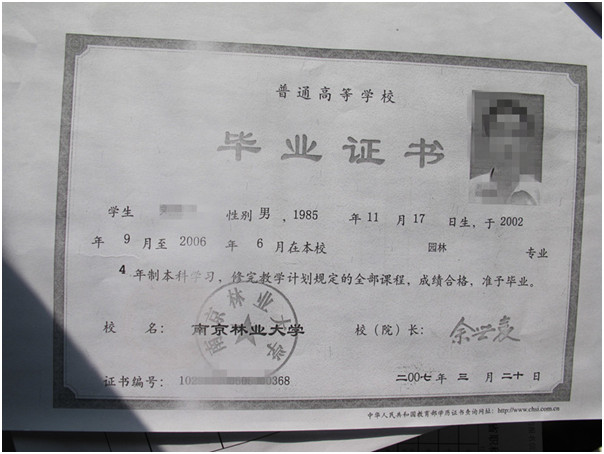 普通高等学校
毕业证书
学生 性别 男 ，1985 年 11 月 17 日生，于 2002
年 9 月至 2006 年 6 月在本校 园林 专业
4 年制本科学习，修完教学计划规定的全部课程，成绩合格，准予毕业。
校 名： 南京林业大学 校（院）长：
南京林业大学
证书编号： 102 60 0368 二〇〇七 年 三 月 二十 日
中华人民共和国教育部学历证书查询网址：http://www.chsi.com.cn